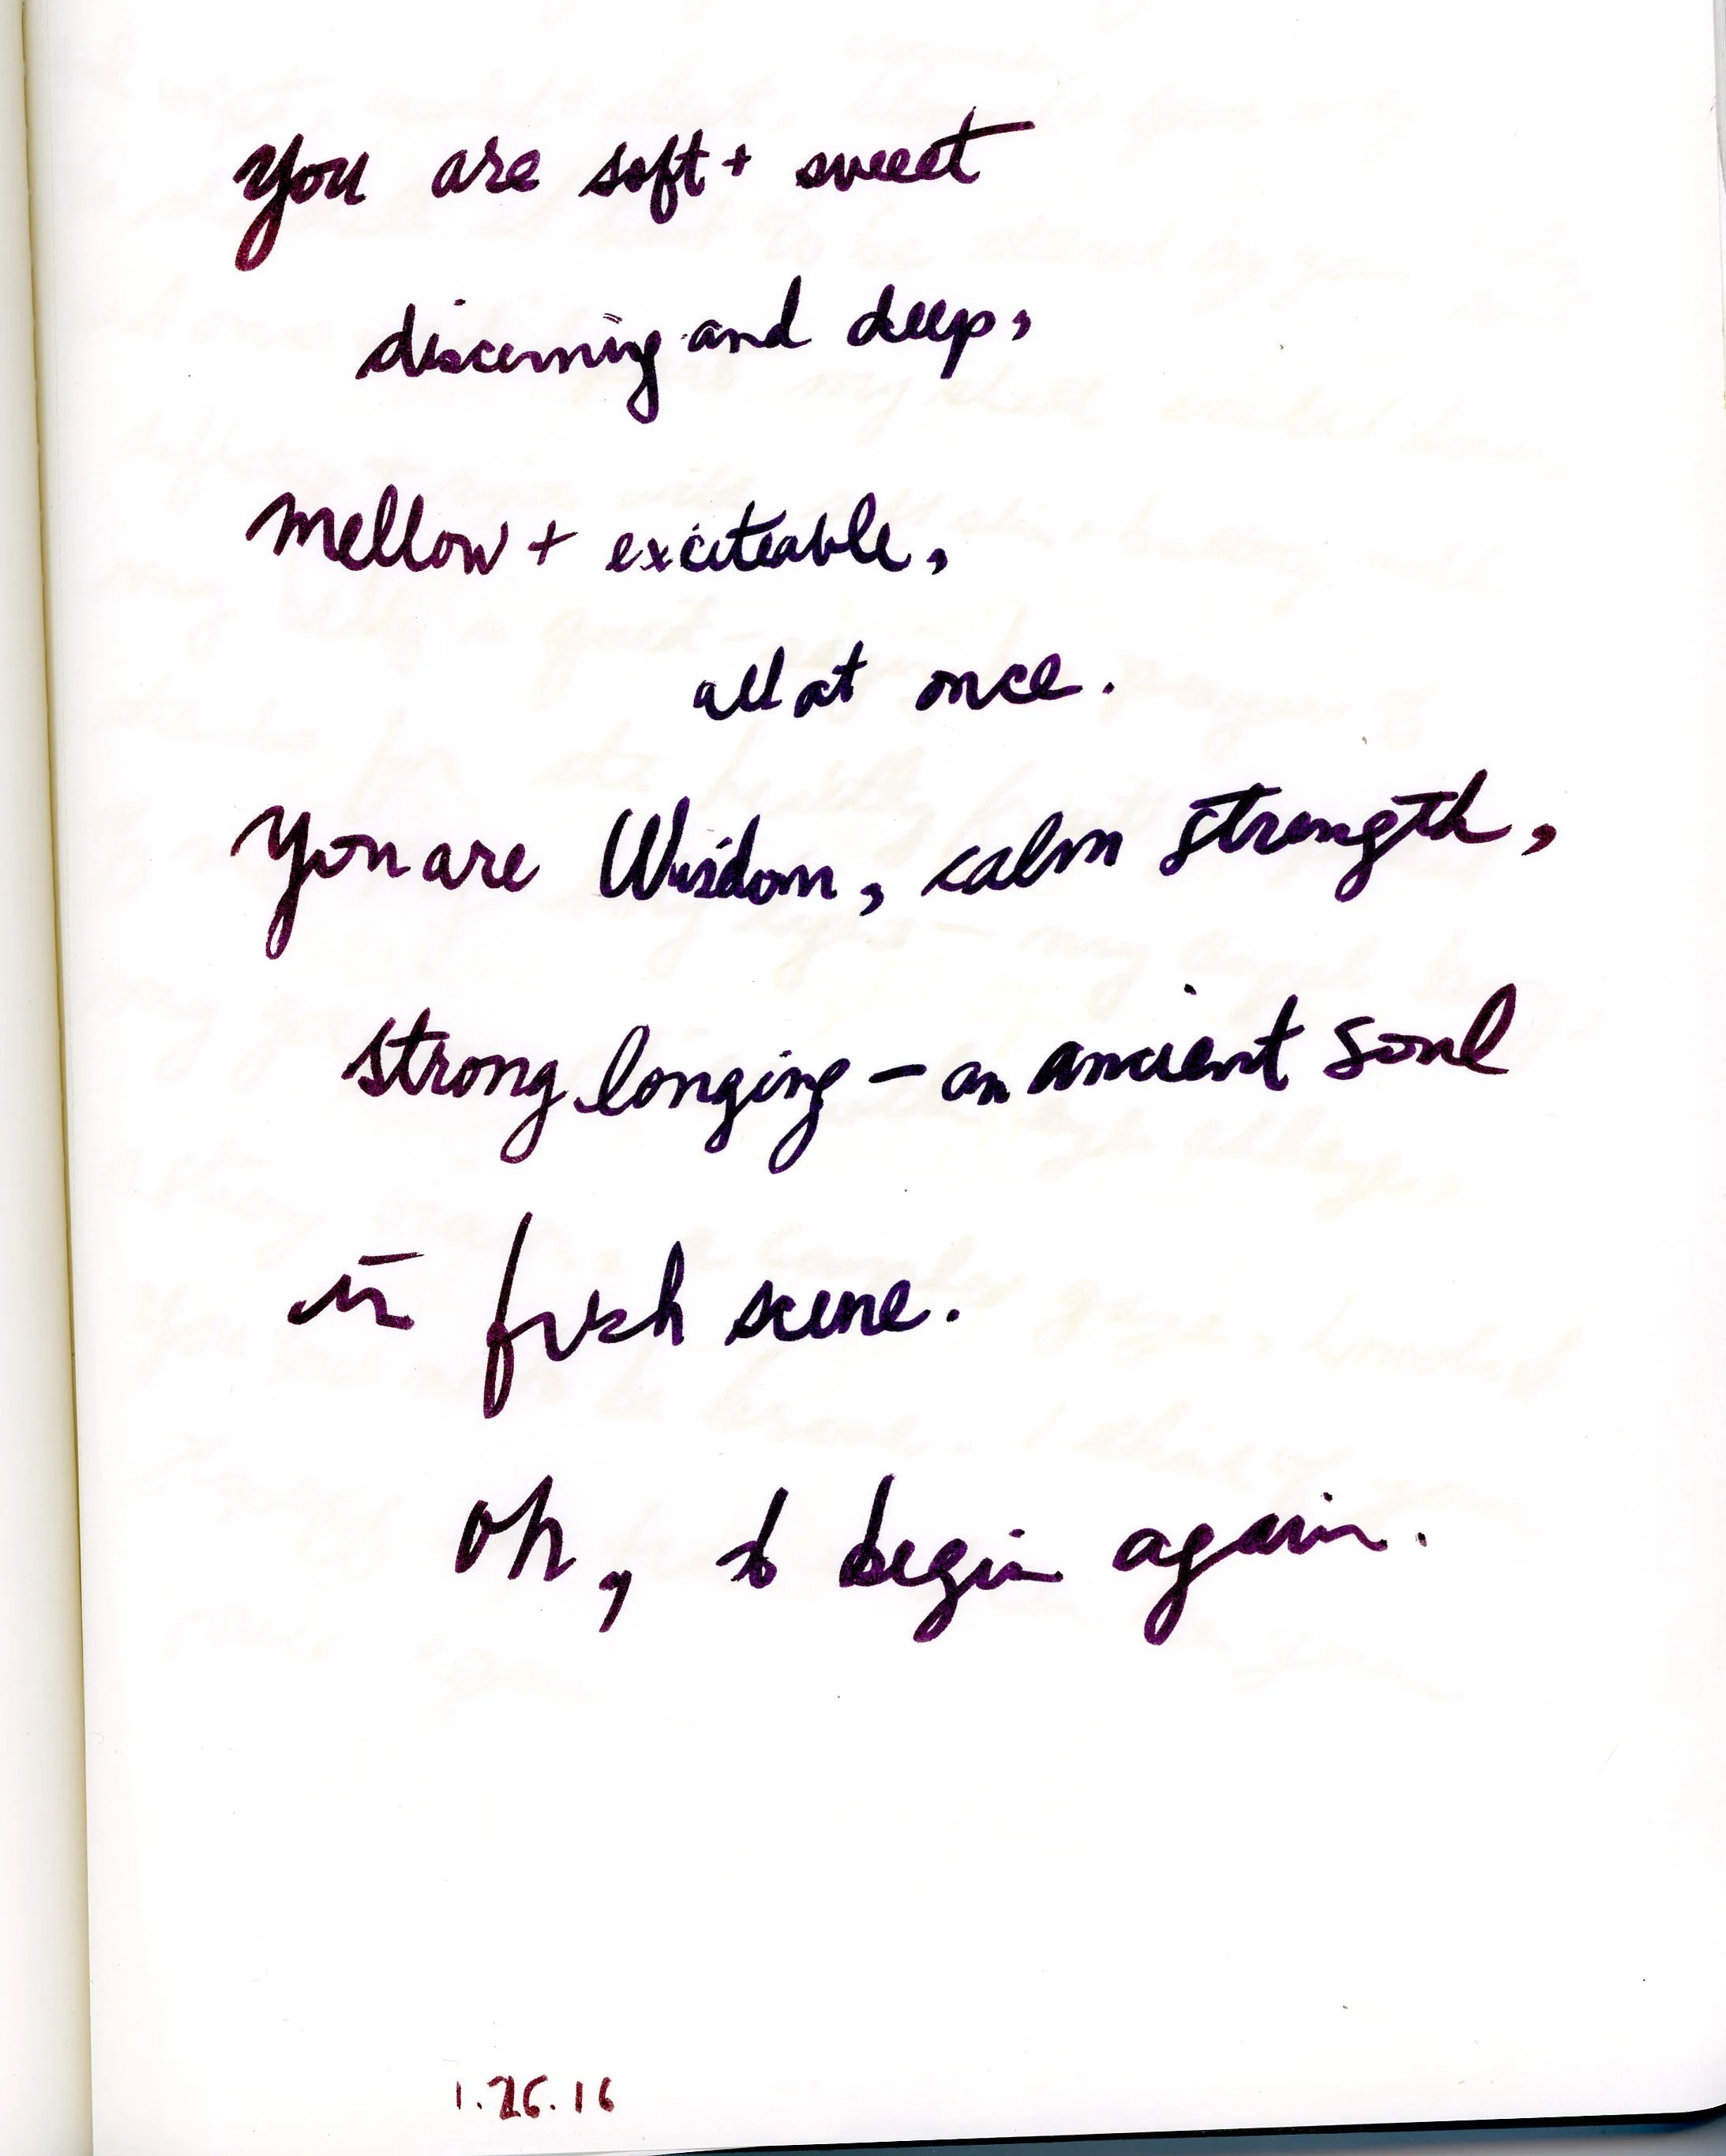 you are soft + sweet
discerning and deep,
mellow + exciteable,
all at once.
you are Wisdom, calm strength,
strong longing – an ancient soul
in fresh scene.
Oh, to begin again.
1.26.16